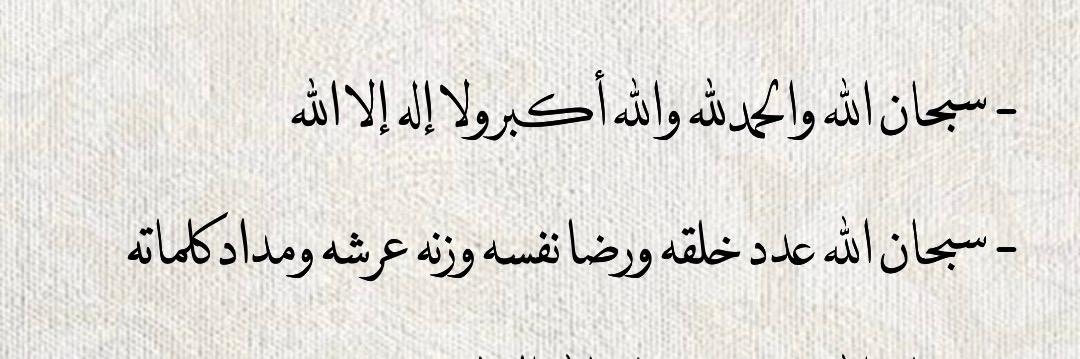 - سبحان الله والحمدلله والله أكبر ولا إله إلا الله
- سبحان الله عدد خلقه ورضا نفسه وزنه عرشه ومداد كلماته